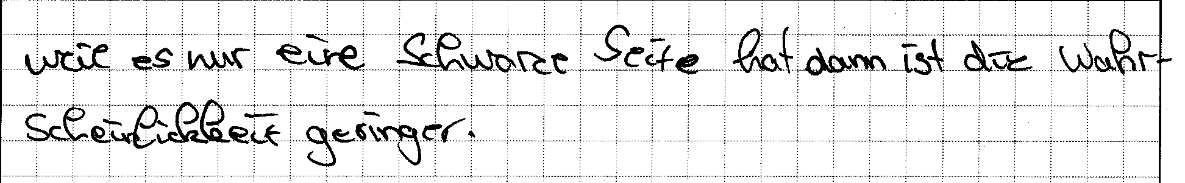 weil es nur eine Schwarze Seite hat dann ist die Wahr-
scheinlichkeit geringer.